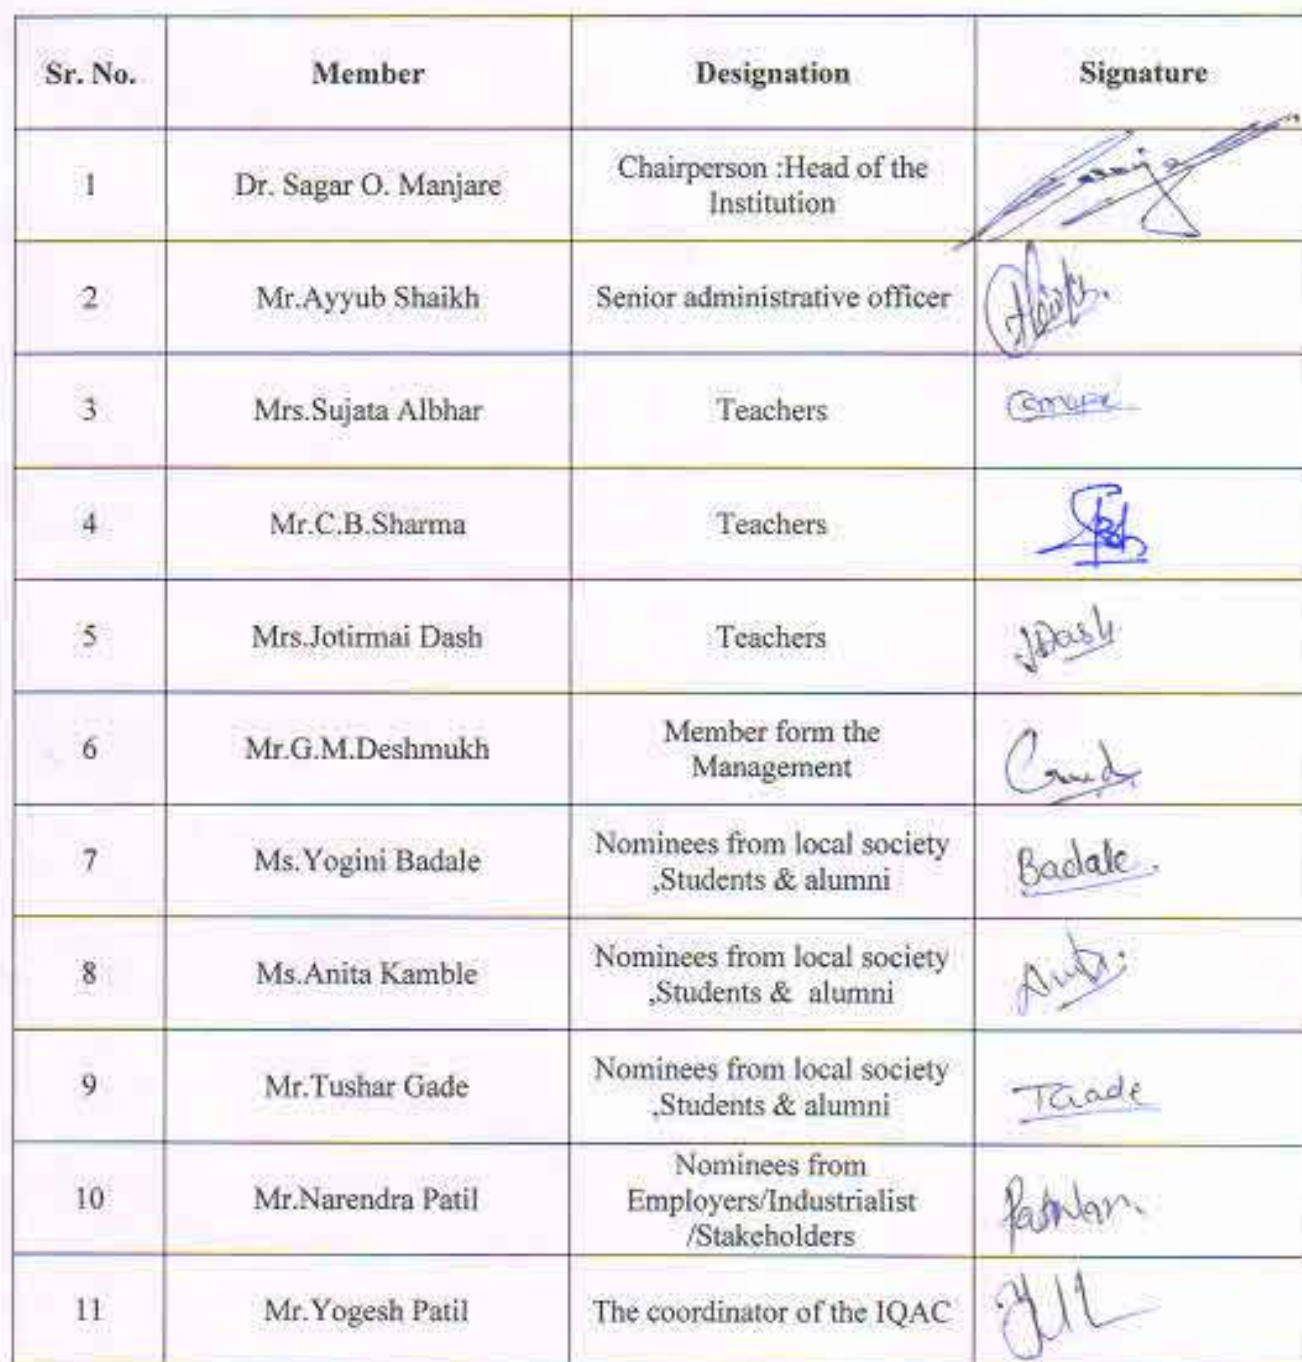 Sr. No. Member Designation Signature
1 Dr. Sagar O. Manjare Chairperson :Head of the
Institution
2 Mr.Ayyub Shaikh Senior administrative officer
3 Mrs.Sujata Albhar Teachers
4 Mr.C.B.Sharma Teachers
5 Mrs.Jotirmai Dash Teachers JDash
6 Mr.G.M.Deshmukh Member form the
Management
7 Ms.Yogini Badale Nominees from local society
,Students & alumni Badale.
8 Ms.Anita Kamble Nominees from local society
,Students & alumni
9 Mr.Tushar Gade Nominees from local society
,Students & alumni TGade
10 Mr.Narendra Patil Nominees from
Employers/Industrialist
/Stakeholders
11 Mr.Yogesh Patil The coordinator of the IQAC